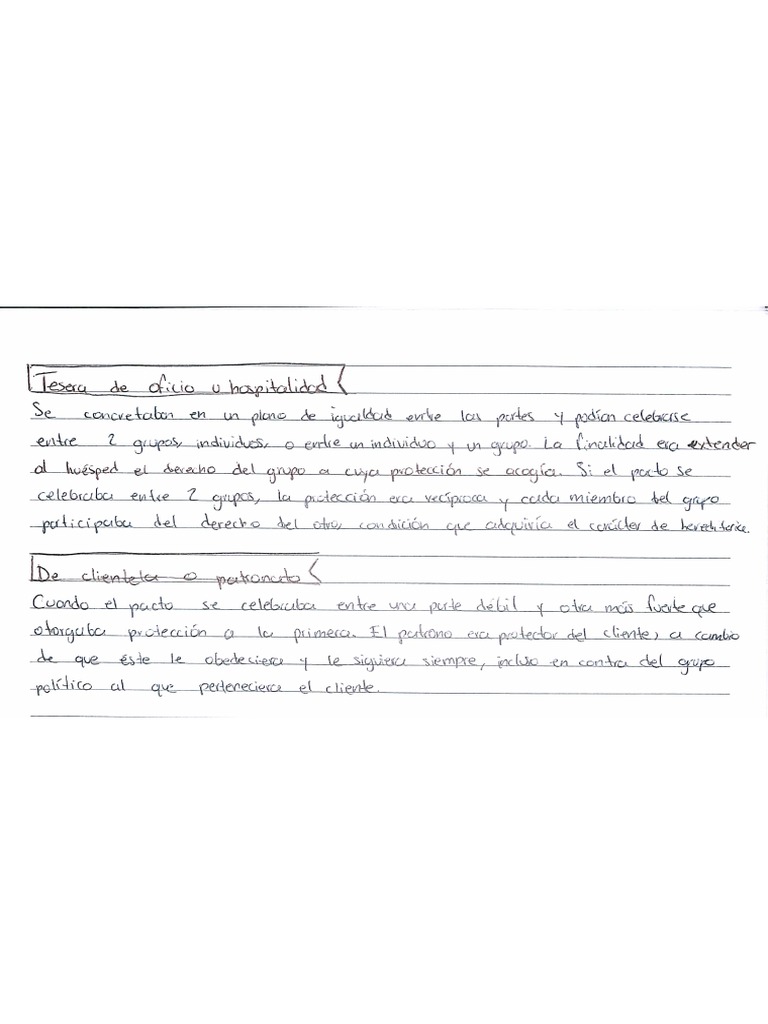 Tesera de oficio u hospitalidad
Se concretaban en un plano de igualdad entre las partes y podían celebrarse
entre 2 grupos, individuos, o entre un individuo y un grupo. La finalidad era extender
al huésped el derecho del grupo a cuya protección se acogía. Si el pacto se
celebraba entre 2 grupos, la protección era recíproca y cada miembro del grupo
participaba del derecho del otro, condición que adquiría el carácter de
De clientela o patronato
Cuando el pacto se celebraba entre una parte débil y otra más fuerte que
otorgaba protección a la primera. El patrono era protector del cliente, a cambio
de que éste le obedeciera y le siguiera siempre, incluso en contra del grupo
político al que perteneciera el cliente.